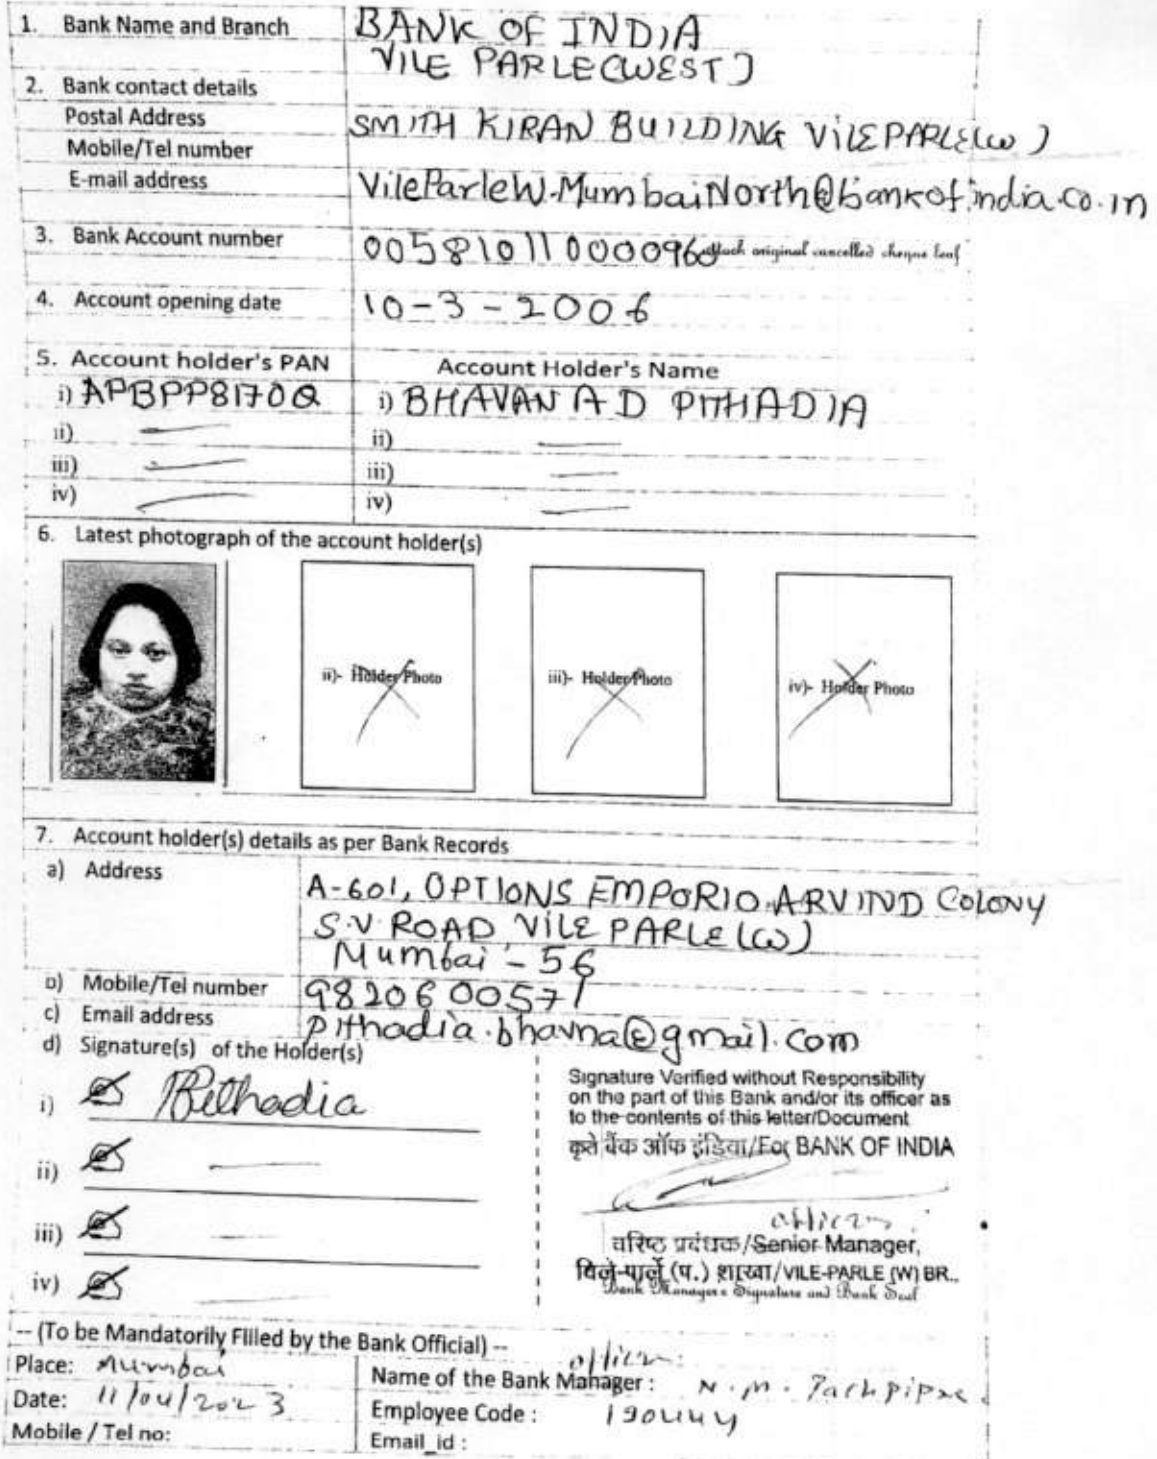 1. Bank Name and Branch BANK OF INDIA
VILE PARLE(WEST)
2. Bank contact details
Postal Address SMITH KIRAN BUILDING VILEPARLE(W)
Mobile/Tel number
E-mail address VileParleW.MumbaiNorth@bankofindia.co.in
3. Bank Account number 005810110000960 Attach original cancelled cheque leaf
4. Account opening date 10-3-2006
5. Account holder's PAN Account Holder's Name
i) APBPP8170Q i) BHAVANA D PITHADIA
ii) ii)
iii) iii)
iv) iv)
6. Latest photograph of the account holder(s)
ii)- Holder Photo iii)- Holder Photo iv)- Holder Photo
7. Account holder(s) details as per Bank Records
a) Address A-601, OPTIONS EMPORIO ARVIND COLONY
S.V. ROAD VILE PARLE (W)
Mumbai - 56
b) Mobile/Tel number 9820600571
c) Email address pithadia.bhavna@gmail.com
d) Signature(s) of the Holder(s)
i) Pithadia
ii)
iii)
iv)
Signature Verified without Responsibility
on the part of this Bank and/or its officer as
to the contents of this letter/Document
कृते बैंक ऑफ इंडिया/For BANK OF INDIA
officer
वरिष्ठ प्रबंधक/Senior Manager,
विले-पार्ले (प.) शाखा/VILE-PARLE (W) BR..
Bank Managers Signature and Bank Seal
-- (To be Mandatorily Filled by the Bank Official) --
Place: Mumbai
Date: 11/04/2023
Mobile / Tel no:
officer
Name of the Bank Manager : N. M.
Employee Code : 190444
Email_id :